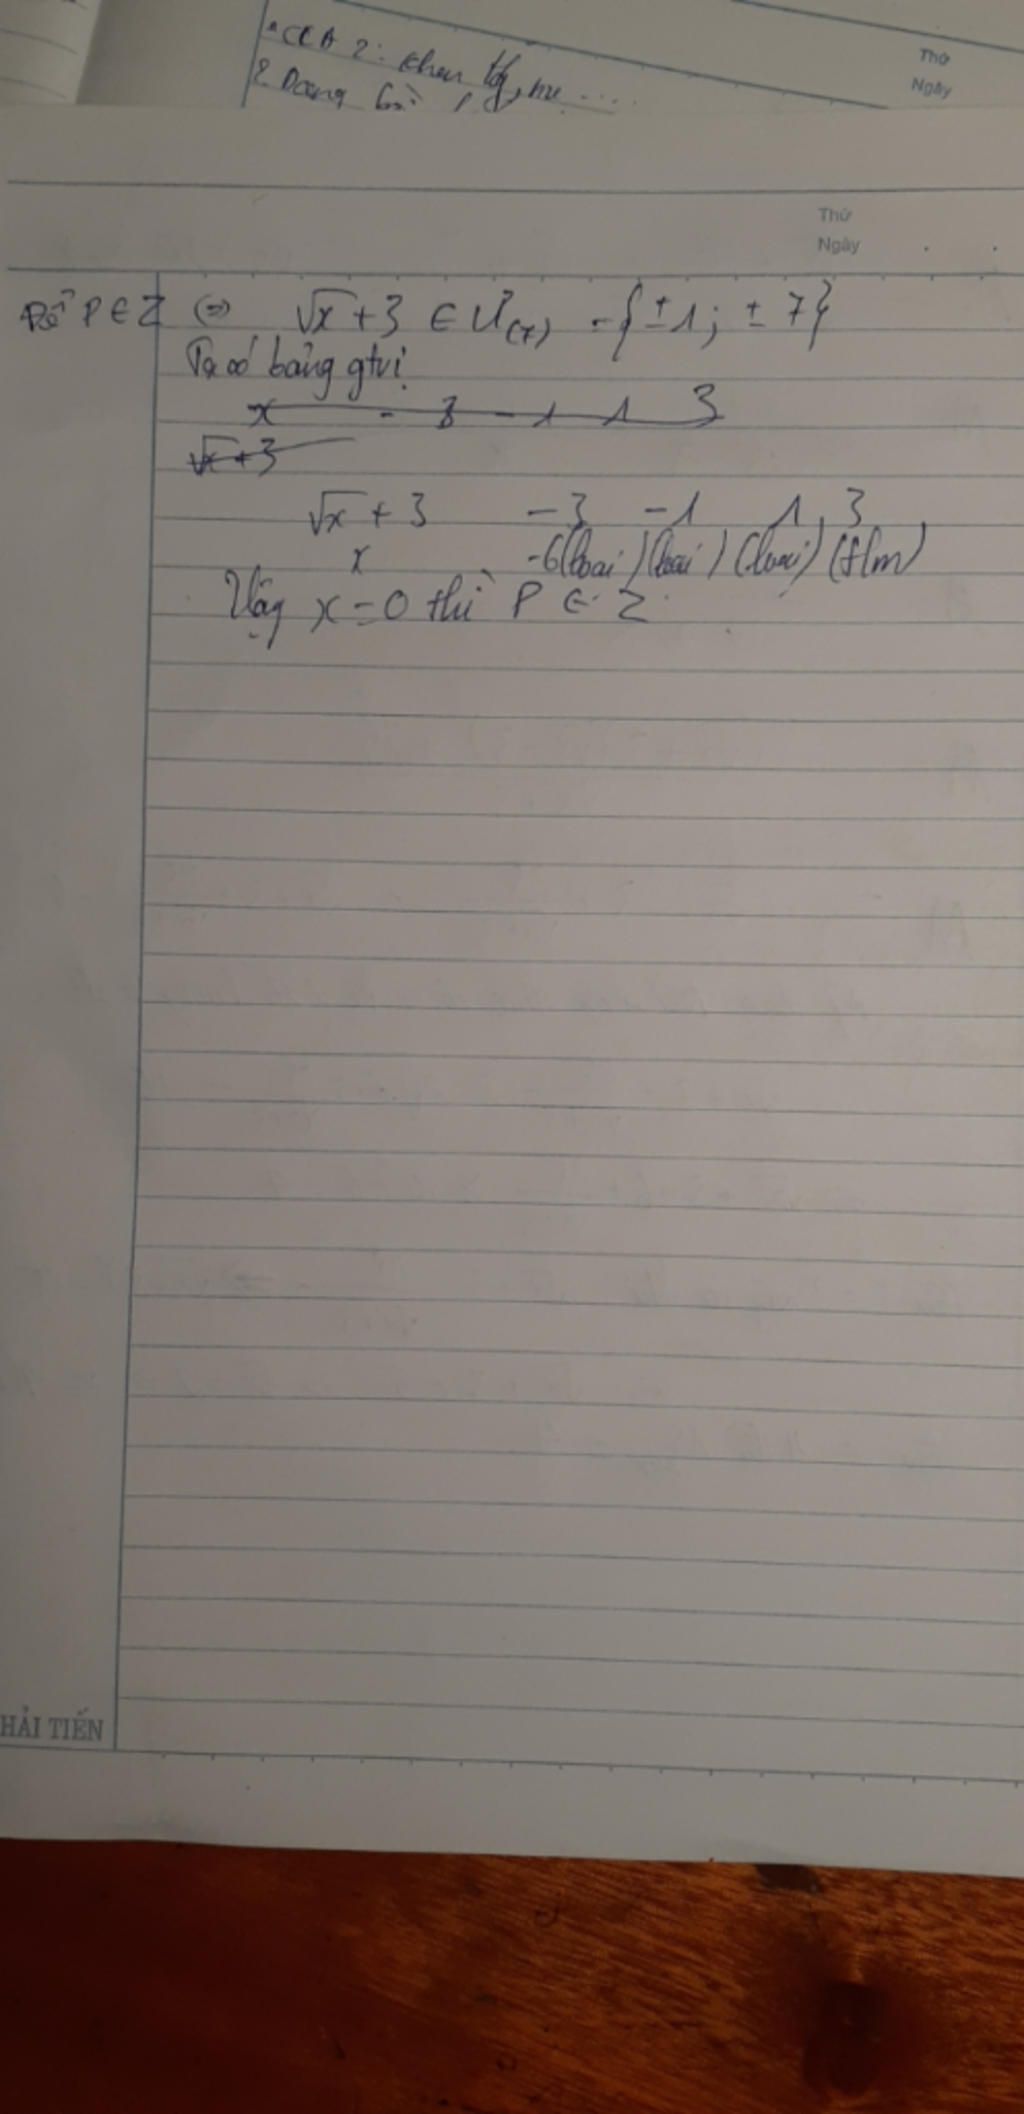 CCB 2: khen
2 Dạng
Thứ
Ngày
Thứ
Ngày
Để P ∈ Z (=) √x + 3 ∈ Ư(7) = {±1; ± 7}
Ta có bảng gtrị
x - 3 - 1 1 3
√x+3
√x + 3 -3 -1 1 3
x -6(loại) (loại) (loại) (tm)
Vậy x = 0 thì P ∈ Z
HẢI TIẾN